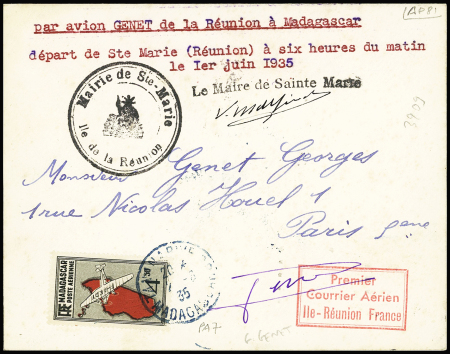 par avion GENET de la Réunion à Madagascar
AP81
départ de Ste Marie (Réunion) à six heures du matin
le Ier juin I935
Le Maire de Sainte Marie
Mairie de Ste-Marie
Ile de la Réunion
3909
Monsieur Genet Georges
1 rue Nicolas Houel 1
Paris 5eme
MADAGASCAR
POSTE AÉRIENNE
RF
35
MADAGASCAR
Premier
Courrier Aérien
Ile-Réunion France
PA7
G. GENET